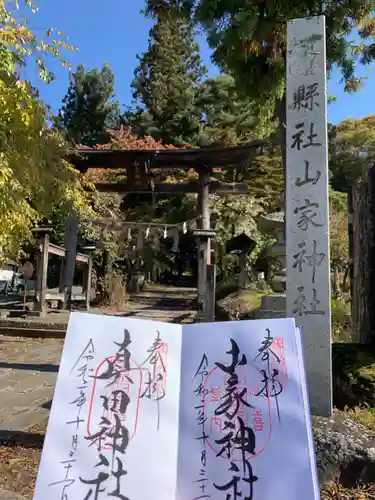 縣社山家神社
奉拝
山家神社
令和二年十月三十
奉拝
真田神社
令和二年十月三十